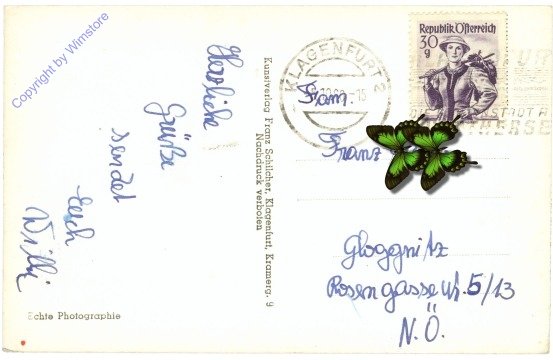 Copyright by Wimstore
Herzliche
Grüße
sendet
Euch
Willi
Echte Photographie
Kunstverlag Franz Schilcher, Klagenfurt, Kramerg. 9
Nachdruck verboten
KLAGENFURT 2
Republik Österreich
30
g
Fam.
Franz
Gloggnitz
Rosengasse Nr. 5/13
N.Ö.